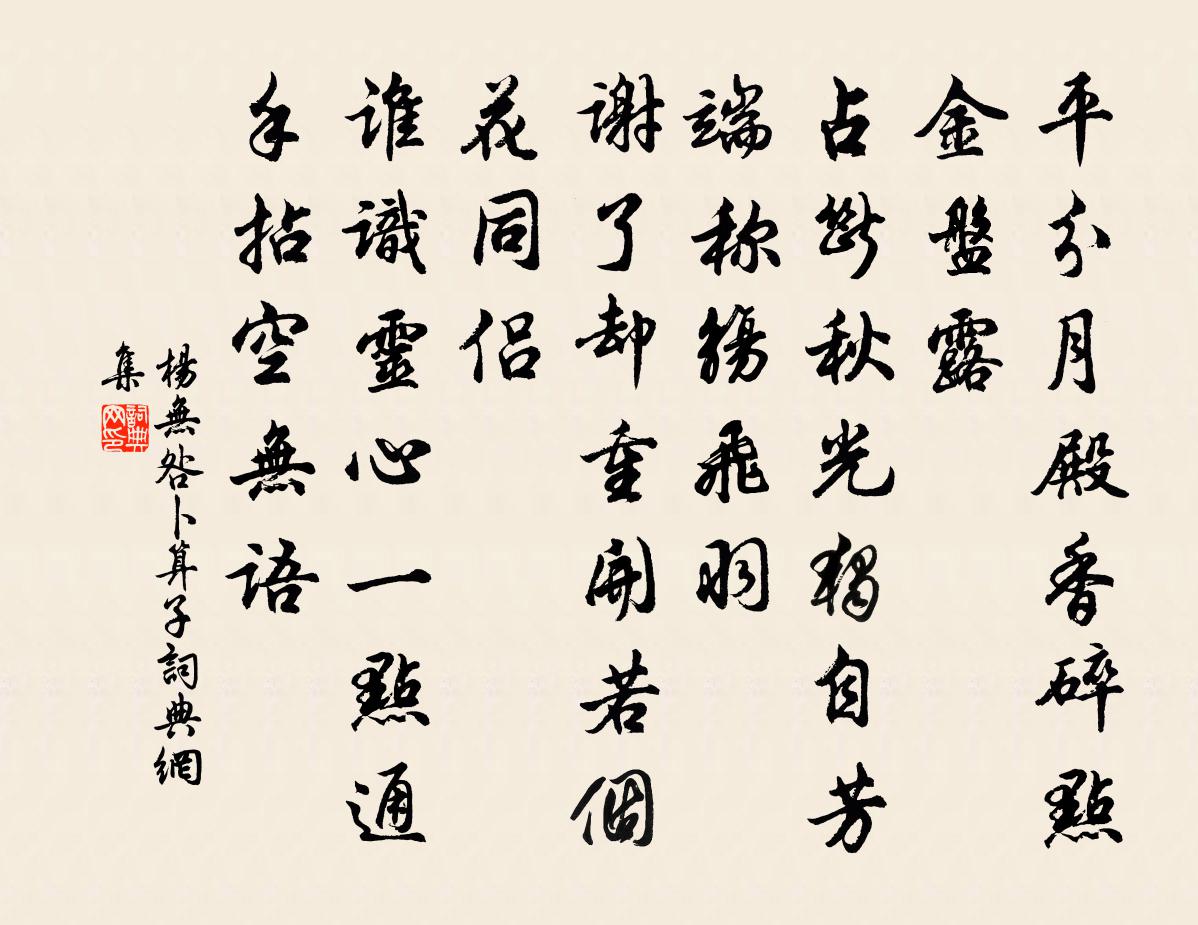 平分月殿香碎點
金盤露
占斷秋光獨自芳
端称觴飛羽
謝了却重開若個
花同侶
誰識靈心一點通
手拈空無語
楊無咎卜算子詞典網
集
詞典网印